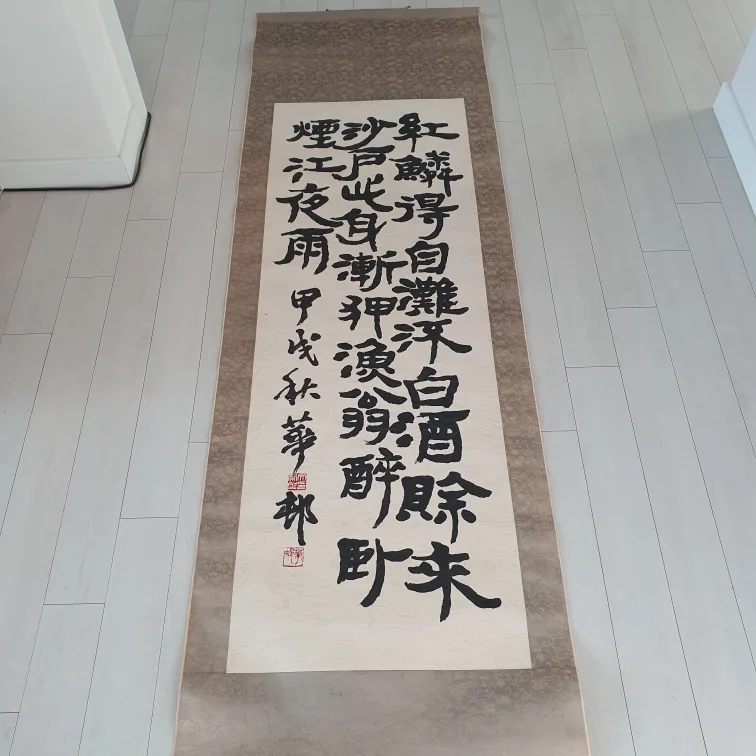 紅鱗得自灘汙白酒賒来
沙戶此身漸狎漁翁醉臥
煙江夜雨 甲戌秋華邨